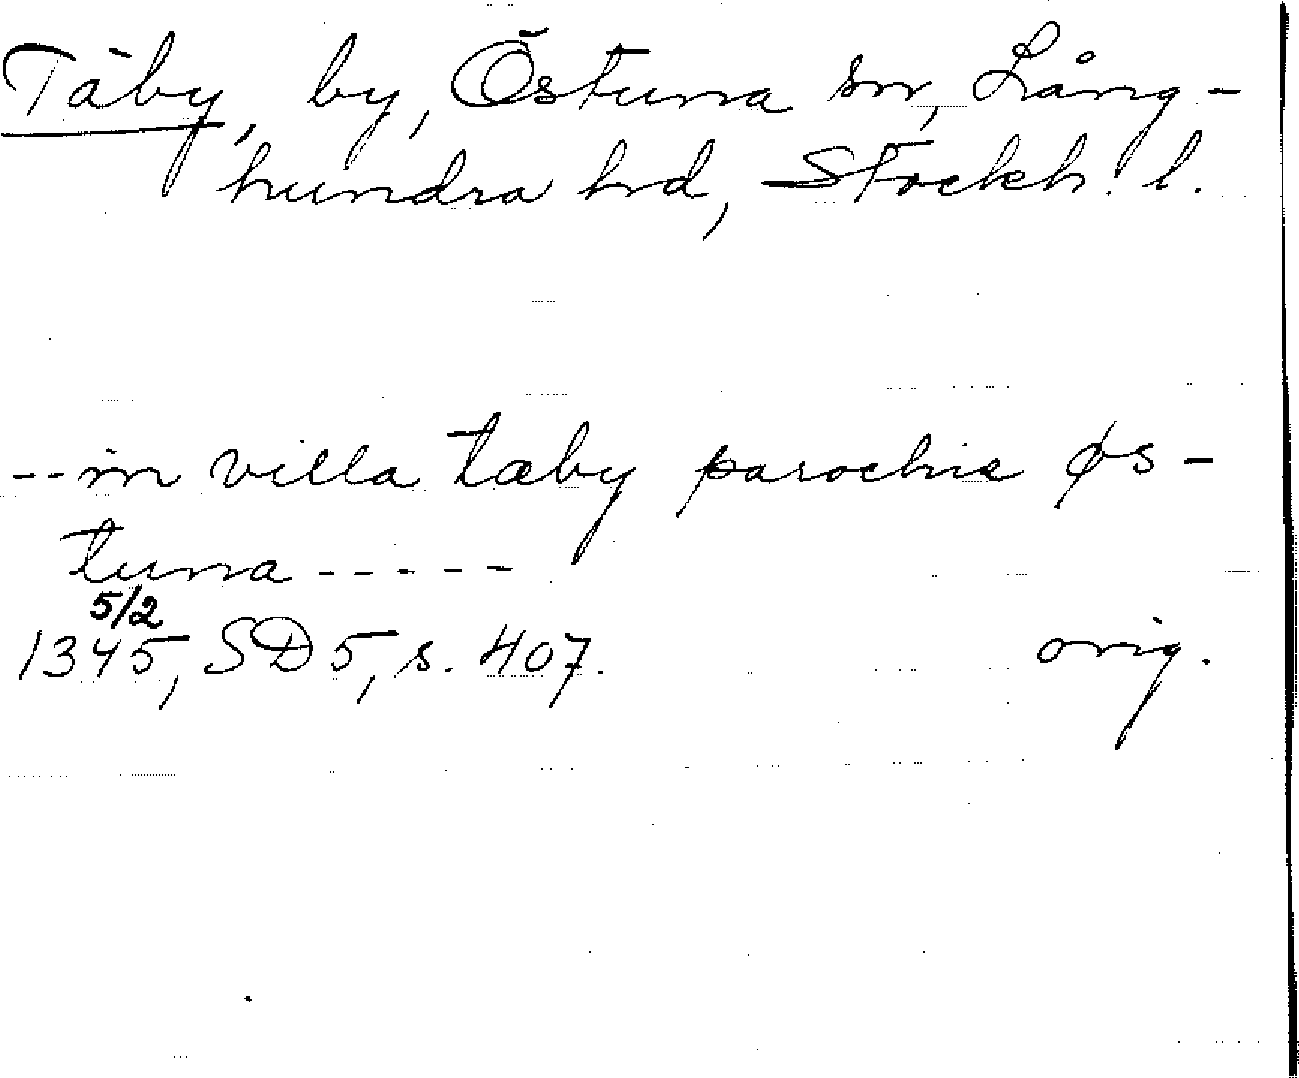 Täby, by, Östuna sn, Lång-
hundra hd, Stockh. l.
--in villa tæby parochia øs-
tuna -----
5/2
1345, SD 5, s. 407. orig.